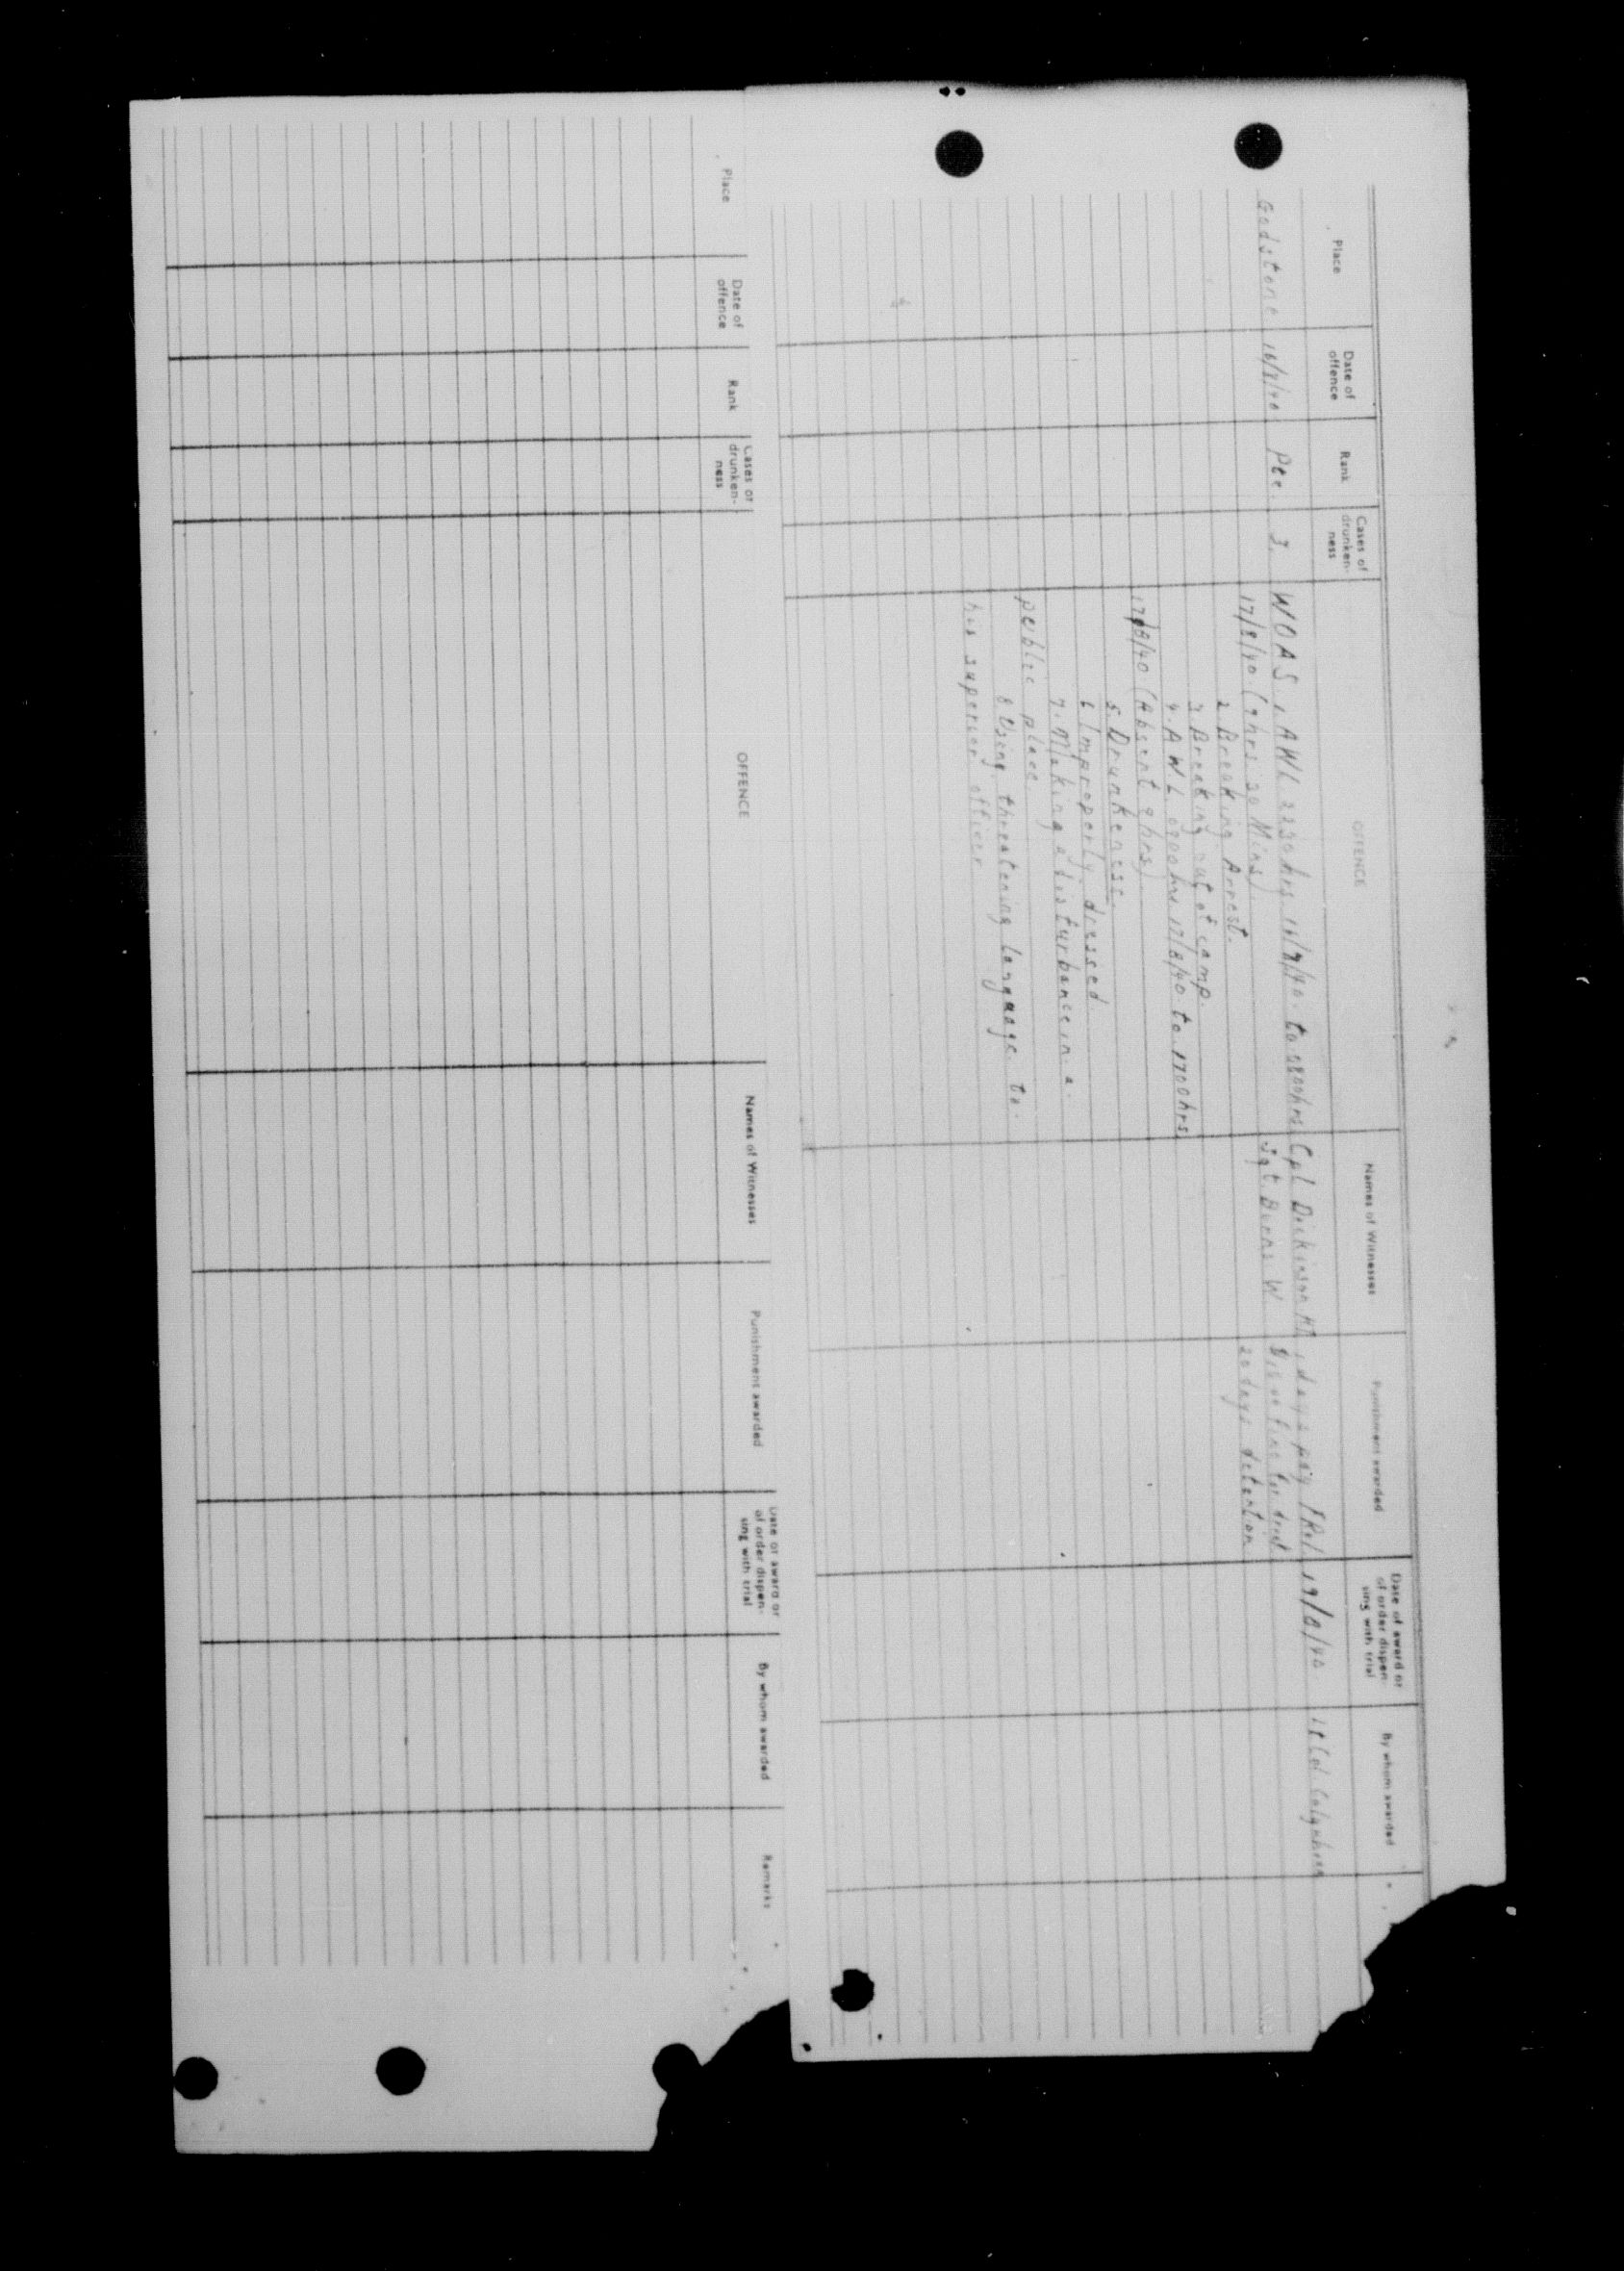 Place
Date of offence
Rank
Cases of drunken-ness
OFFENCE
Names of Witnesses
Punishment awarded
Date of award or of order dispen-sing with trial
By whom awarded
Godstone
16/8/40
Pte
3.
WOAS 1. AWL 2230hrs 16/8/40. to 0800hrs
17/8/40. (9hrs 30 Mins).
2. Breaking Arrest.
3. Breaking out of camp.
4. A.W.L. 0800hrs 17/8/40 to 1700hrs
17/8/40 (Absent 9hrs).
5. Drunkeness
6 Improperly dressed
7. Making a disturbance in a.
public place.
8 Using threatening language to.
his superior officer
Cpl Dickinson
Sgt. Burns W.
days pay
fine for
detention
19/8/40
Lt Col
Place
Date of offence
Rank
Cases of drunken-ness
OFFENCE
Names of Witnesses
Punishment awarded
Date of award or of order dispen-sing with trial
By whom awarded
Remarks